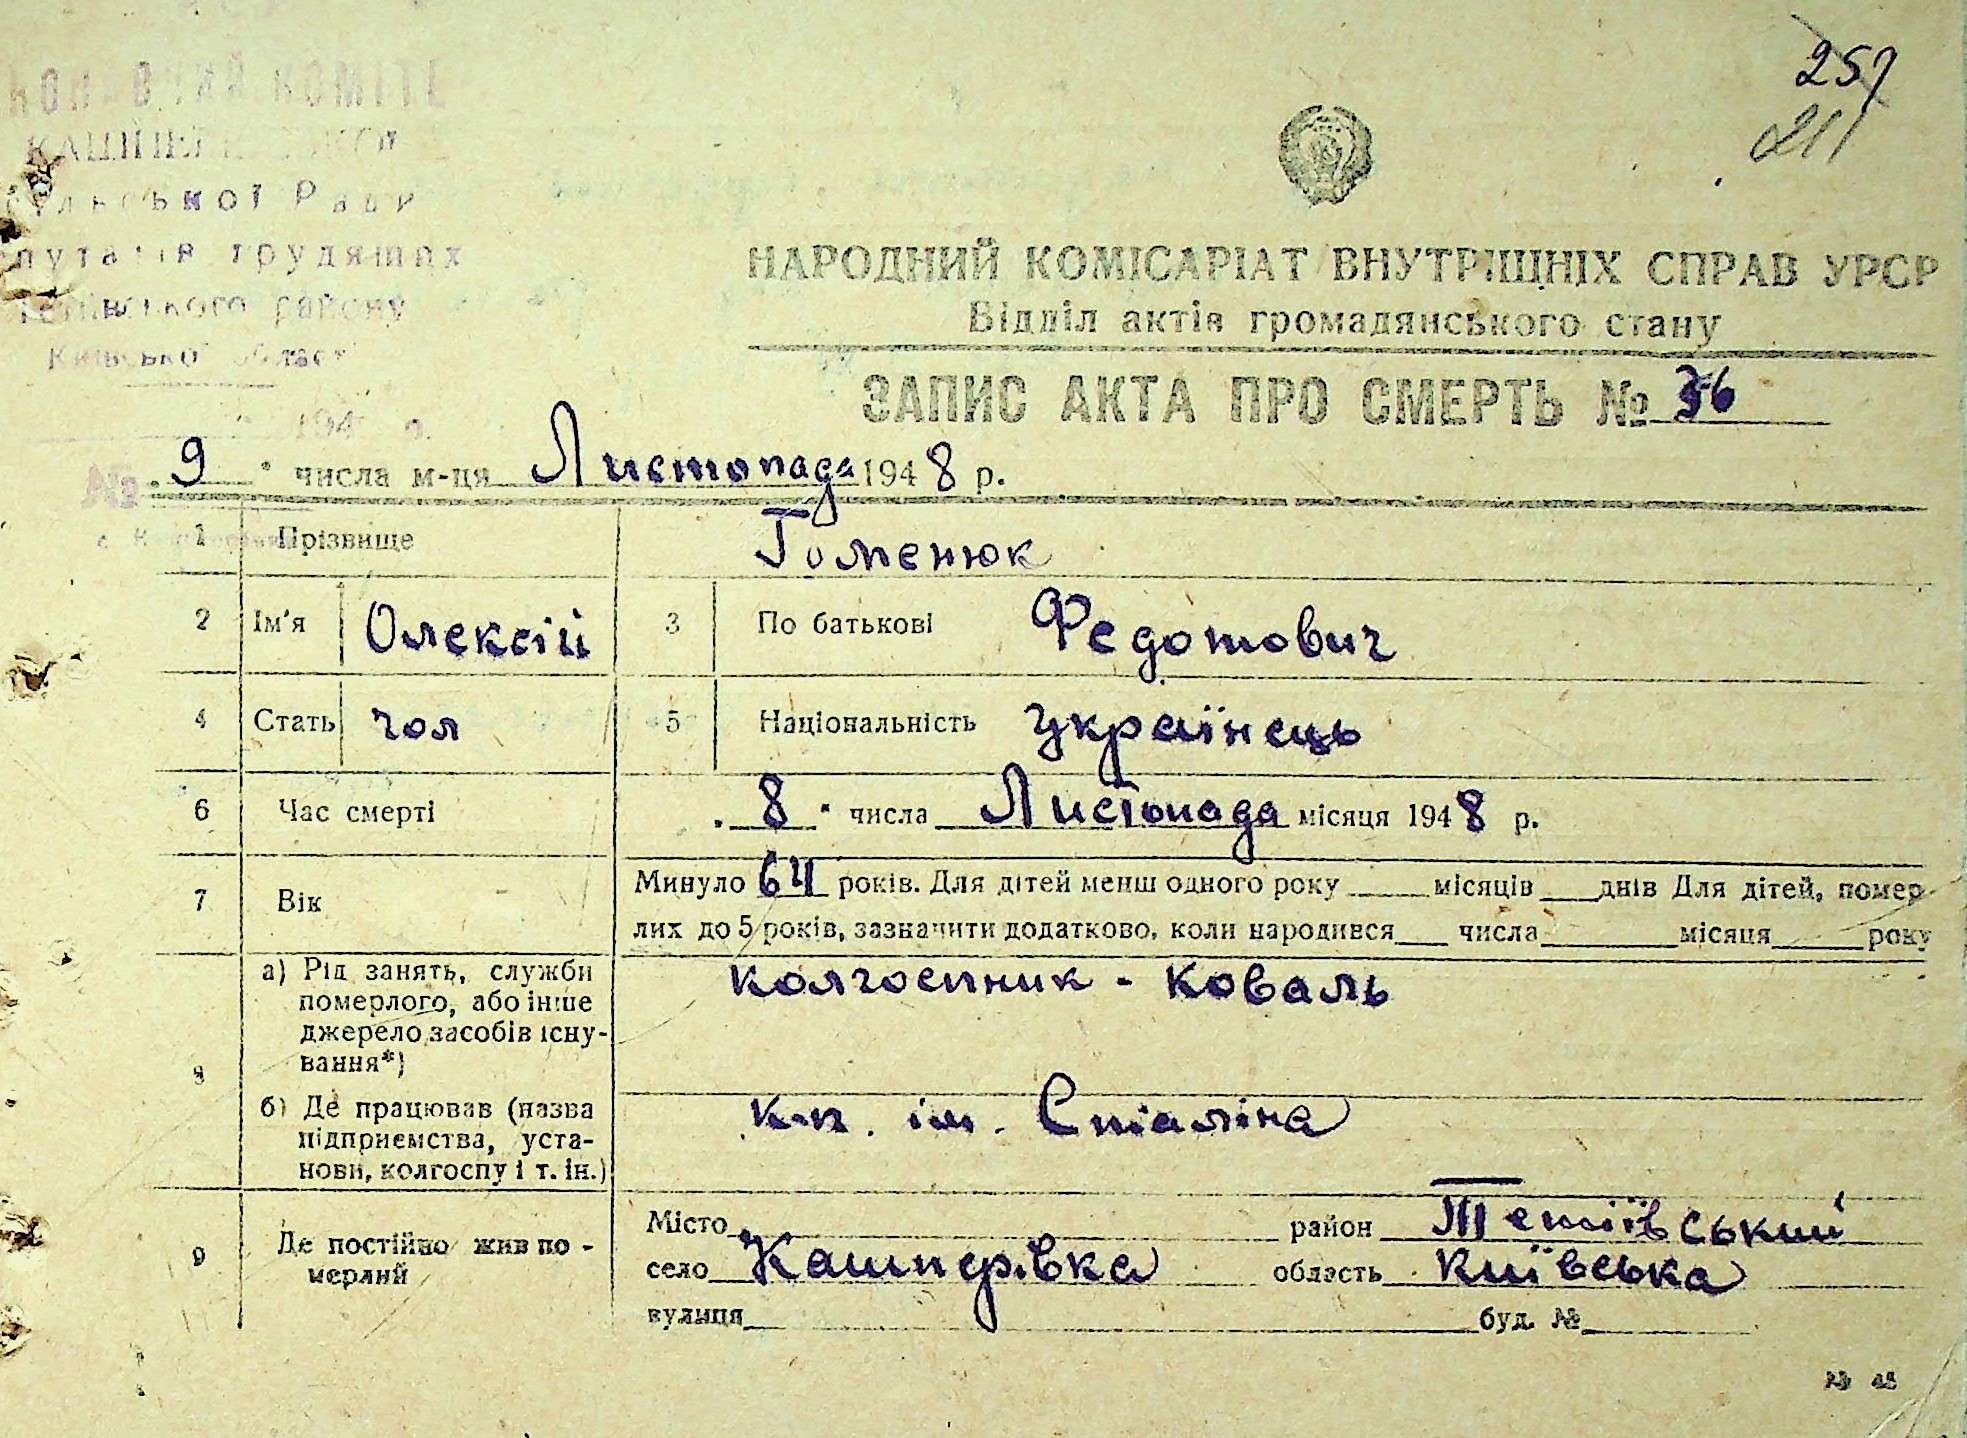 257
211
сільської Ради
трудящих
району
НАРОДНИЙ КОМІСАРІАТ ВНУТРІШНІХ СПРАВ УРСР
Відділ актів громадянського стану
ЗАПИС АКТА ПРО СМЕРТЬ № 36
194 р.
№ „9“ числа м-ця Листопада 1948 р.
1 Прізвище Гоменюк
2 Ім'я Олексій 3 По батькові Федотович
4 Стать чол 5 Національність українець
6 Час смерті „8“ числа Листопада місяця 1948 р.
7 Вік Минуло 64 років. Для дітей менш одного року ____ місяців ____ днів Для дітей, помер-
лих до 5 років, зазначити додатково, коли народився ____ числа ____ місяця ____ року
8 а) Рід занять, служби
померлого, або інше
джерело засобів існу-
вання*)
колгоспник - коваль
б) Де працював (назва
підприємства, уста-
нови, колгоспу і т. ін.)
к-п. ім. Сталіна
9 Де постійно жив по-
мерлий
Місто ____ район Тетіївський
село Кашперівка область Київська
вулиця ____ буд. №